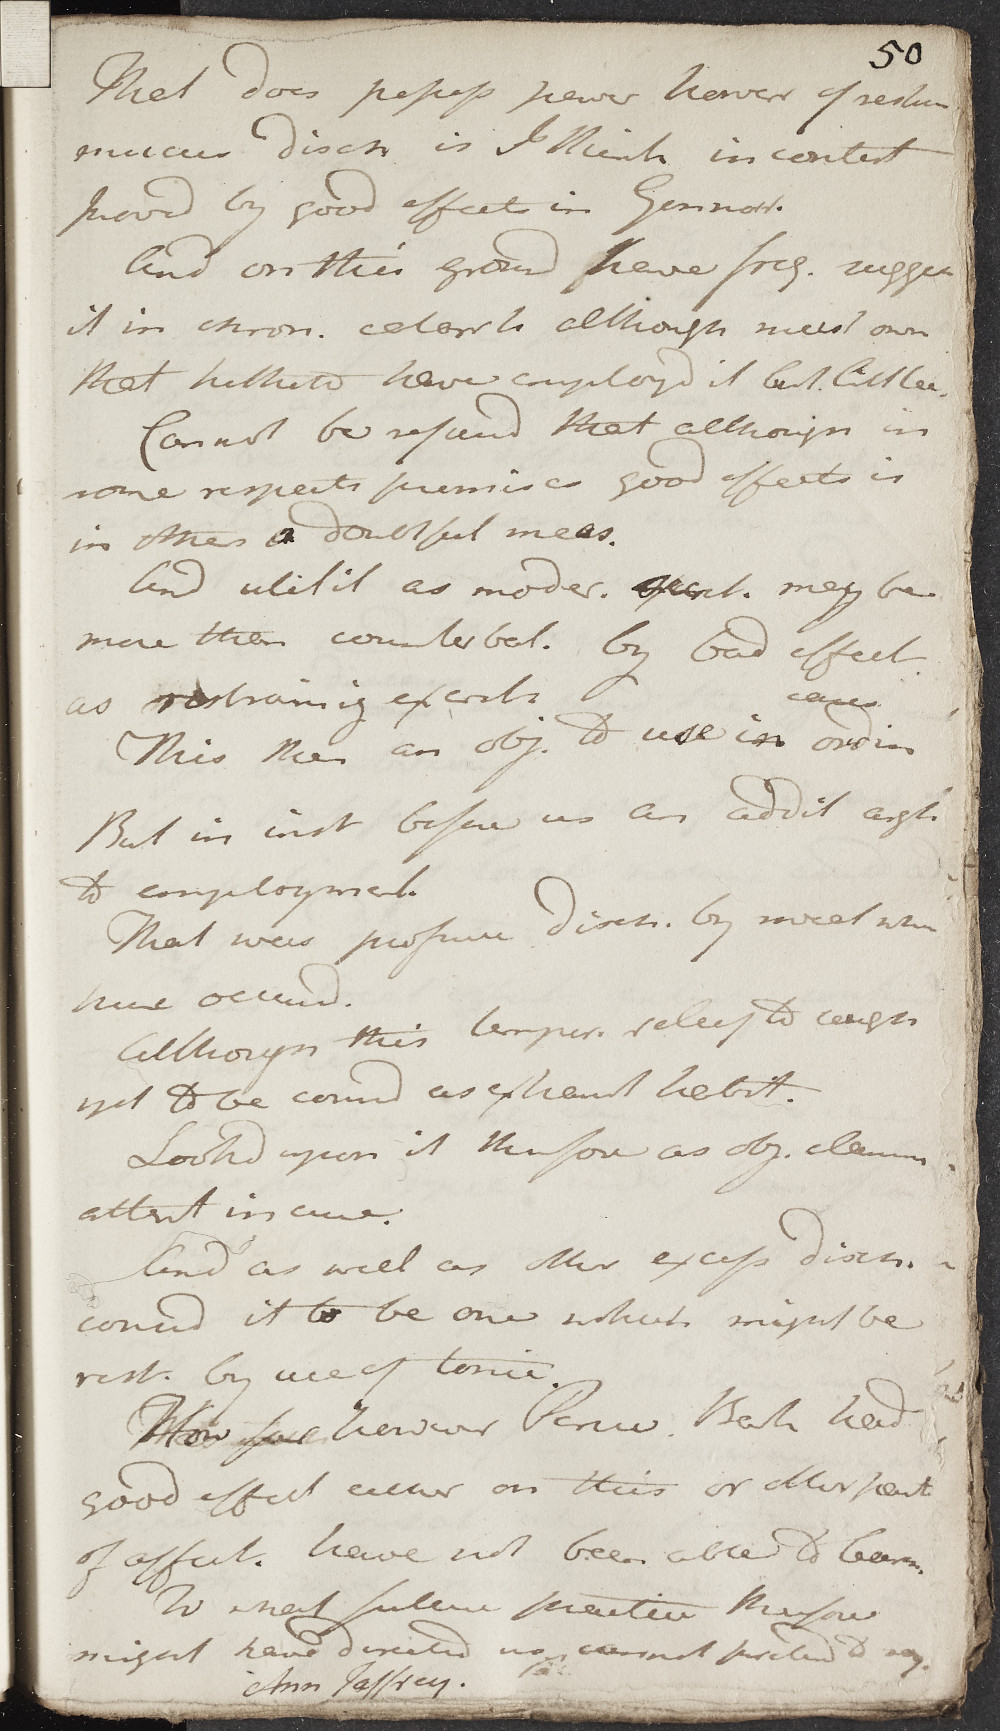 50
That does possess power however of restrn
mucus disch is I think incontest
provd by good effects in Gonnorr.
And on this ground have freq. sugges
it in chron. catarrh although must own
that hitherto have employd it but little.
Cannot be refusd that although in
some respects promises good effects is
in other a doubtful meas.
And utilit as moder. may be
more then counterbal. by bad effect
as restraining expectn
This then an obj. to use in ordin
cases
But in inst before us an addit argt
to employment.
That was profuse disch. by sweat whn
here occurrd.
Although this tempor. relief to cough
yet to be consid as exhaust habit.
Lookd upon it therefore as obj. demn
attent in cure.
And as well as other excess disch.
considd it to be one which might be
rest. by use of tonic.
How far however Peruv. Bark had
good effect either on this or other part
of affect. have not been able to learn.
To what future practice therefore
might have directed us cannot pretend to say.
Ann Jaffrey.